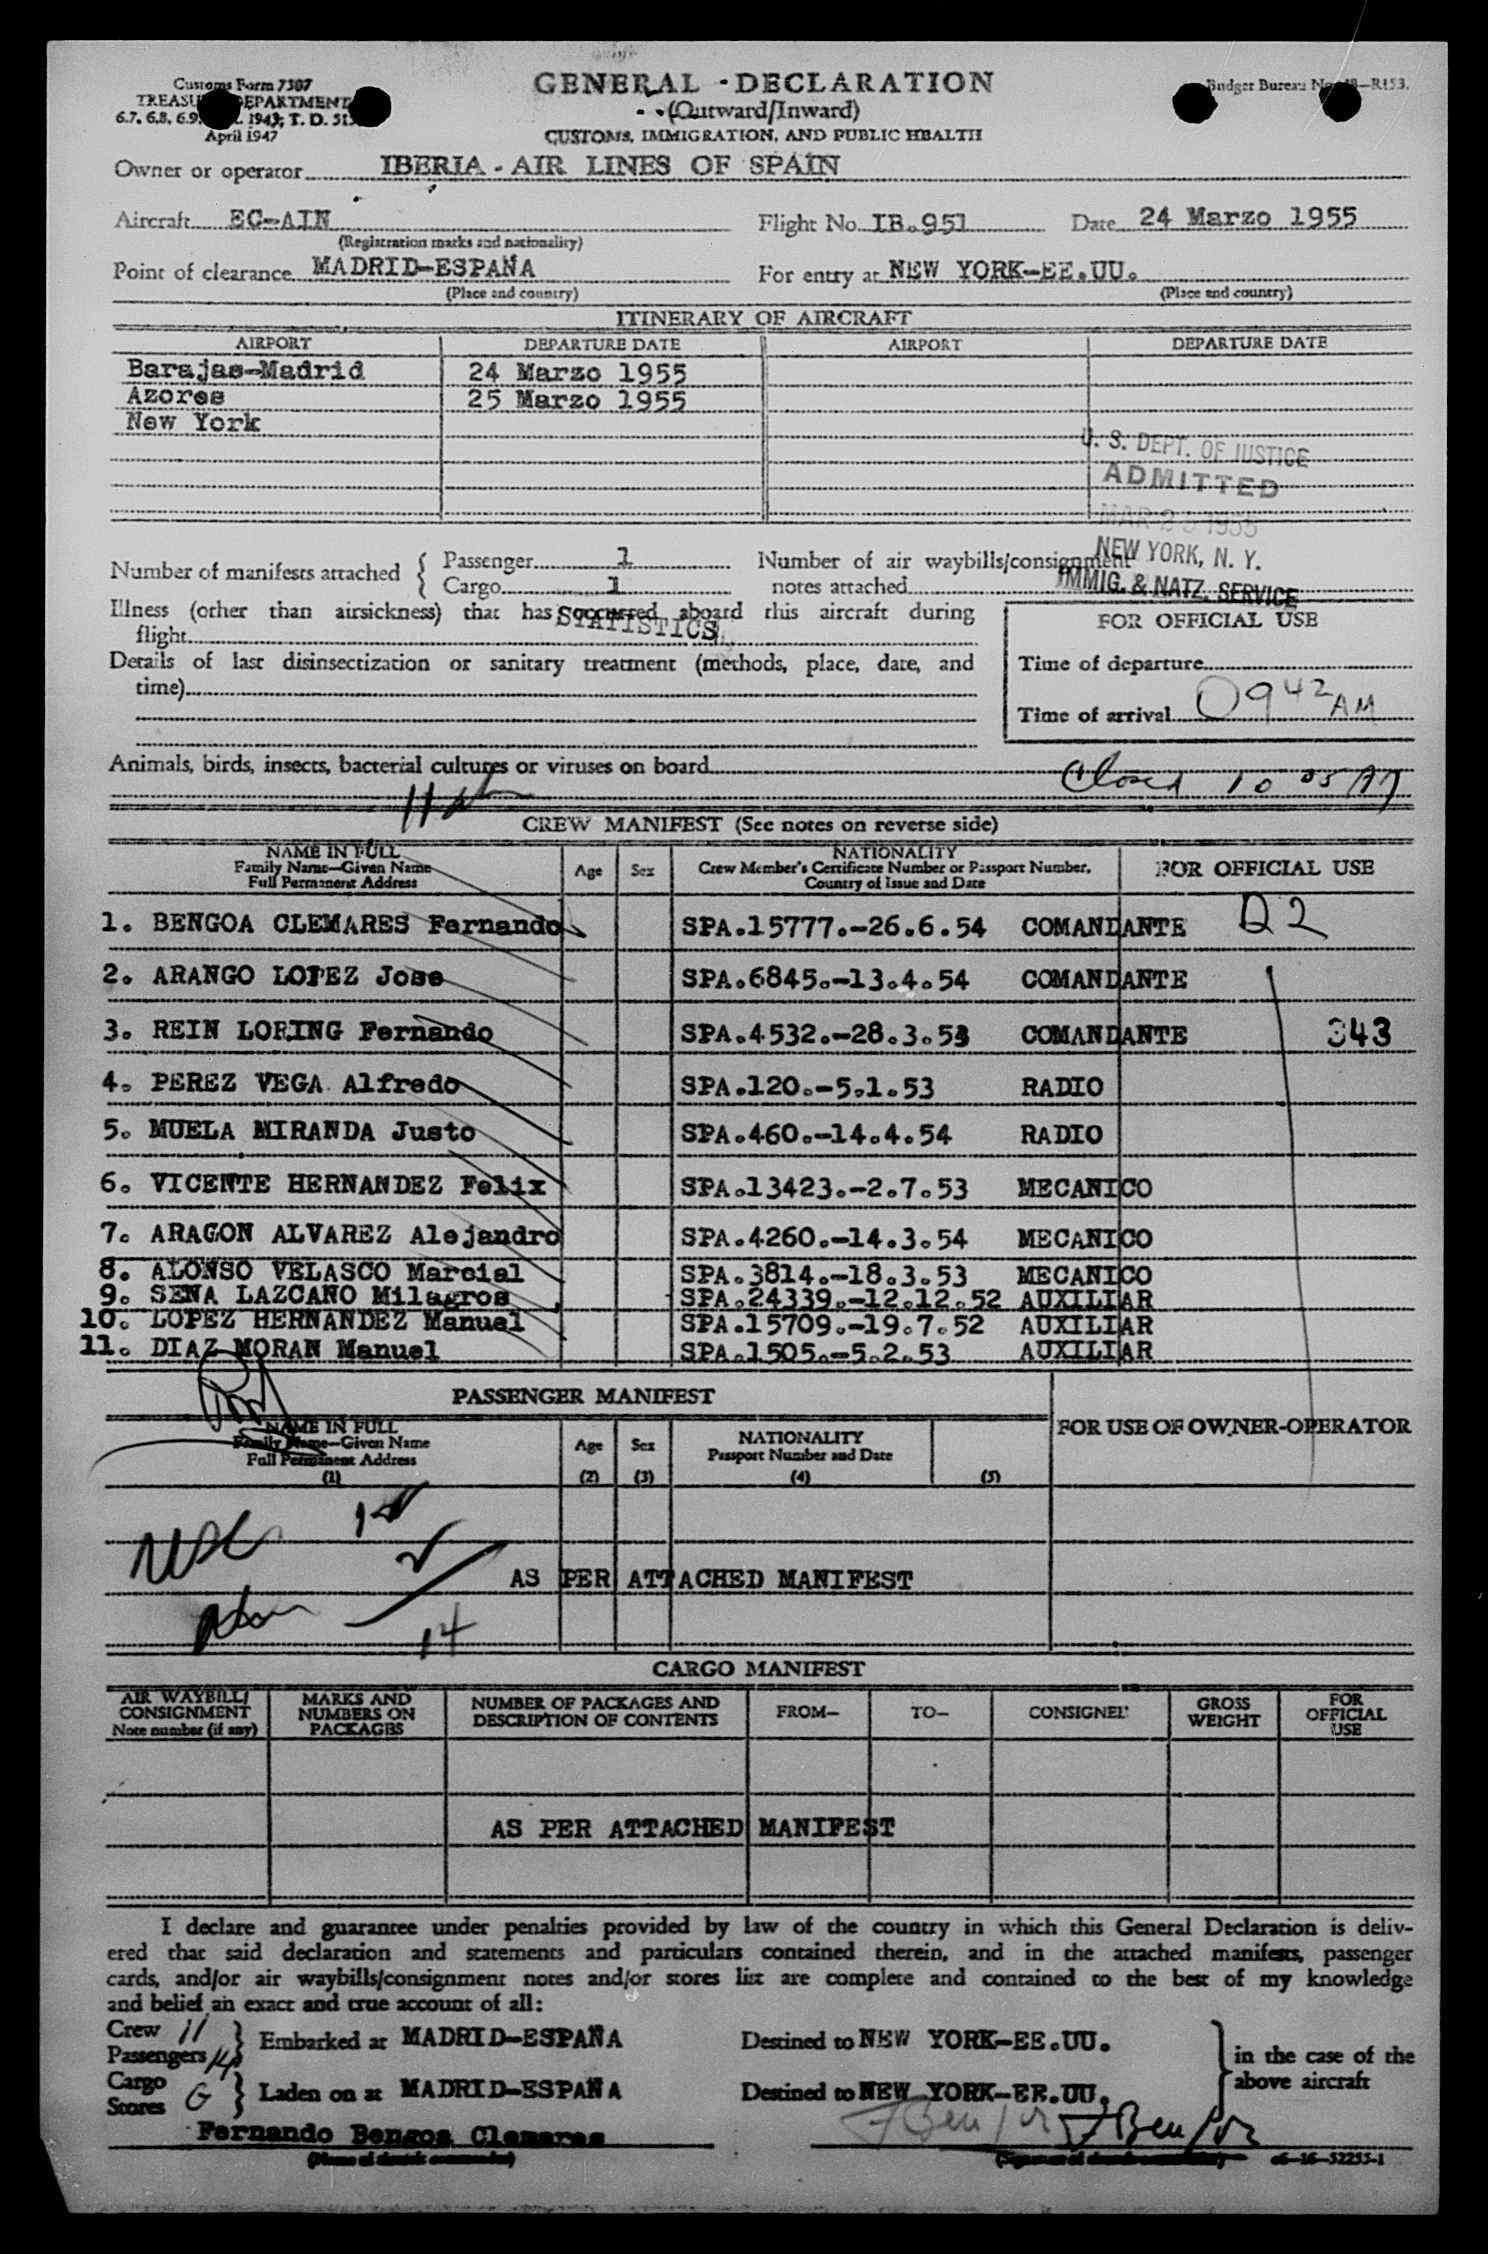 Customs Form 7507
TREASURY DEPARTMENT
April 1947
GENERAL DECLARATION
(Outward/Inward)
CUSTOMS, IMMIGRATION, AND PUBLIC HEALTH
Budget Bureau No.
Owner or operator IBERIA - AIR LINES OF SPAIN
Aircraft EC-AIN Flight No. IB.951 Date 24 Marzo 1955
(Registration marks and nationality)
Point of clearance MADRID-ESPAÑA For entry at NEW YORK-EE.UU.
(Place and country) (Place and country)
ITINERARY OF AIRCRAFT
AIRPORT DEPARTURE DATE AIRPORT DEPARTURE DATE
Barajas-Madrid 24 Marzo 1955
Azores 25 Marzo 1955
New York
U. S. DEPT. OF JUSTICE
ADMITTED
MAR 25 1955
NEW YORK, N. Y.
IMMIG. & NATZ. SERVICE
Number of manifests attached { Passenger 1
Cargo 1
Number of air waybills/consignment
notes attached
Illness (other than airsickness) that has occurred aboard this aircraft during
flight
STATISTICS
Details of last disinsectization or sanitary treatment (methods, place, date, and
time)
FOR OFFICIAL USE
Time of departure
Time of arrival 0942 AM
Animals, birds, insects, bacterial cultures or viruses on board
Closed 10 05 AM
CREW MANIFEST (See notes on reverse side)
NAME IN FULL
Family Name—Given Name
Full Permanent Address
Age Sex
NATIONALITY
Crew Member's Certificate Number or Passport Number,
Country of Issue and Date
FOR OFFICIAL USE
1. BENGOA CLEMARES Fernando SPA.15777.-26.6.54 COMANDANTE D2
2. ARANGO LOPEZ Jose SPA.6845.-13.4.54 COMANDANTE
3. REIN LORING Fernando SPA.4532.-28.3.53 COMANDANTE 343
4. PEREZ VEGA Alfredo SPA.120.-5.1.53 RADIO
5. MUELA MIRANDA Justo SPA.460.-14.4.54 RADIO
6. VICENTE HERNANDEZ Felix SPA.13423.-2.7.53 MECANICO
7. ARAGON ALVAREZ Alejandro SPA.4260.-14.3.54 MECANICO
8. ALONSO VELASCO Marcial SPA.3814.-18.3.53 MECANICO
9. SENA LAZCANO Milagros SPA.24339.-12.12.52 AUXILIAR
10. LOPEZ HERNANDEZ Manuel SPA.15709.-19.7.52 AUXILIAR
11. DIAZ MORAN Manuel SPA.1505.-5.2.53 AUXILIAR
PASSENGER MANIFEST
NAME IN FULL
Family Name—Given Name
Full Permanent Address
(1)
Age
(2)
Sex
(3)
NATIONALITY
Passport Number and Date
(4) (5)
FOR USE OF OWNER-OPERATOR
AS PER ATTACHED MANIFEST
14
CARGO MANIFEST
AIR WAYBILL/
CONSIGNMENT
Note number (if any)
MARKS AND
NUMBERS ON
PACKAGES
NUMBER OF PACKAGES AND
DESCRIPTION OF CONTENTS
FROM—
TO—
CONSIGNEE
GROSS
WEIGHT
FOR
OFFICIAL
USE
AS PER ATTACHED MANIFEST
I declare and guarantee under penalties provided by law of the country in which this General Declaration is deliv-
ered that said declaration and statements and particulars contained therein, and in the attached manifests, passenger
cards, and/or air waybills/consignment notes and/or stores list are complete and contained to the best of my knowledge
and belief an exact and true account of all:
Crew 11
Passengers 14 } Embarked at MADRID-ESPAÑA Destined to NEW YORK-EE.UU.
in the case of the
above aircraft
Cargo
Stores G } Laden on at MADRID-ESPAÑA Destined to NEW YORK-EE.UU.
Fernando Bengoa Clemares
(Name of aircraft commander)
16—52255-1